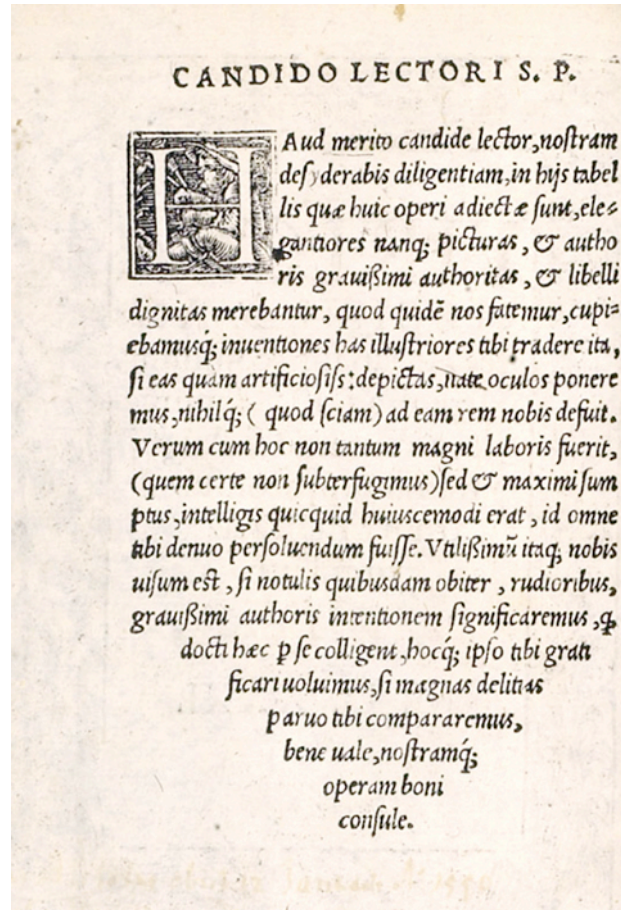 CANDIDO LECTORI S. P.
HAud merito candide lector, noſtram
deſyderabis diligentiam, in hijs tabel
lis quæ huic operi adiectæ ſunt, ele-
gantiores nanq; picturas, & autho
ris grauißimi authoritas, & libelli
dignitas merebantur, quod quidē nos fatemur, cupi-
ebamusq́; inuentiones has illuſtriores tibi tradere ita,
ſi eas quàm artificioſiſs: depictas, oculos ponere
mus, nihilq́; ( quod ſciam) ad eam rem nobis defuit.
Verum cum hoc non tantum magni laboris fuerit,
(quem certe non ſubterfugimus) ſed & maximi ſum
ptus, intelligis quicquid huiuscemodi erat, id omne
tibi denuo perſoluendum fuiſſe. Vtilißimū itaq; nobis
uiſum eſt, ſi notulis quibusdam obiter, rudioribus,
grauißimi authoris intentionem ſignificaremus, ꝙ
docti hæc ꝑ ſe colligent, hocq́; ipſo tibi grati
ficari uoluimus, ſi magnas delitias
paruo tibi compararemus,
bene uale, noſtramq́;
operam boni
conſule.